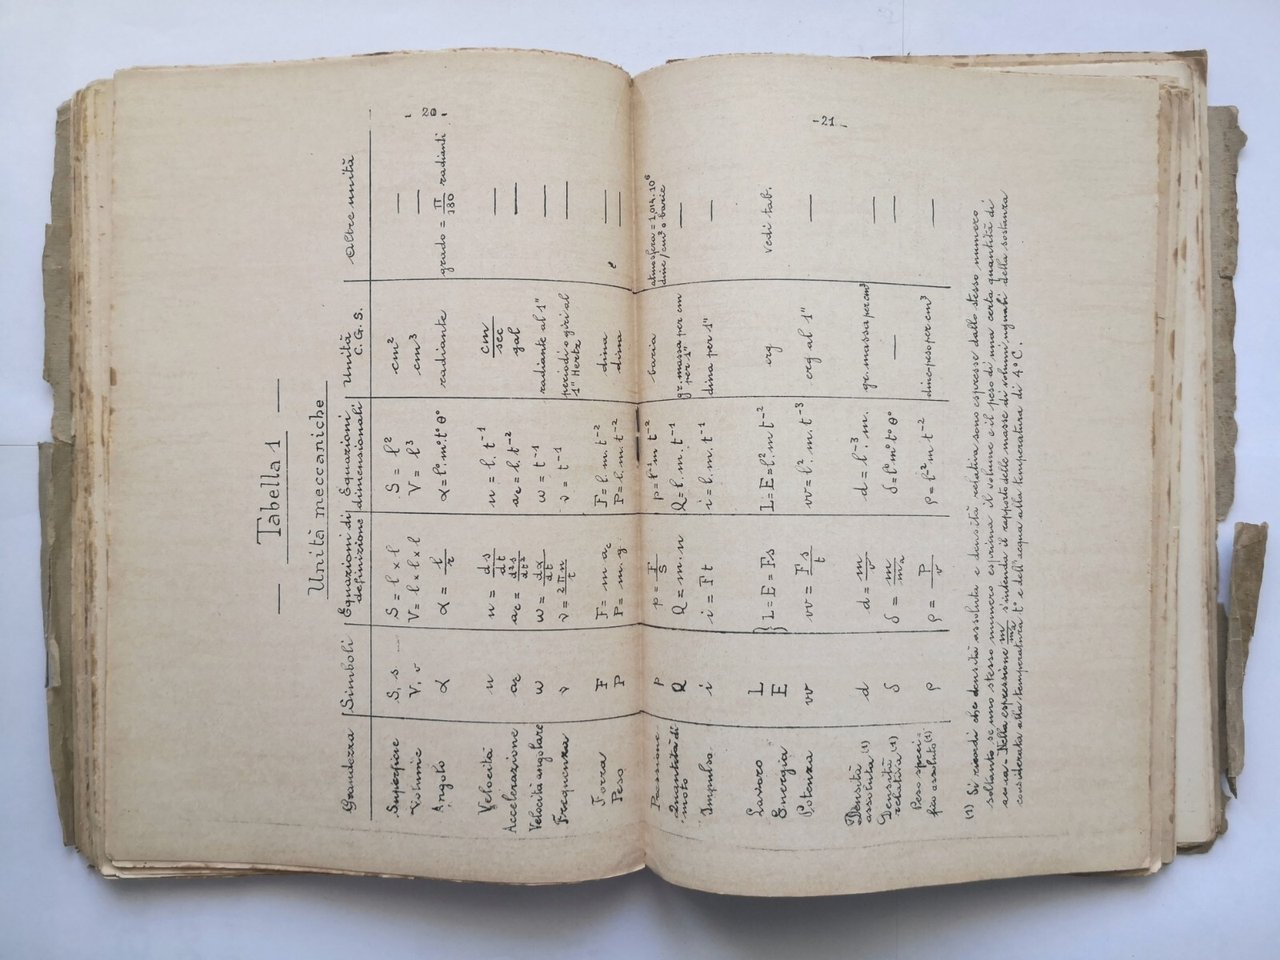 - 20 -
- 21 -
Tabella 1
Unità meccaniche
Grandezza Simboli Equazioni di definizione Equazioni dimensionali Unità C.G.S. Altre unità
Superfice S, s S = l × l S = l² cm² —
Volume V, v V = l × l × l V = l³ cm³ —
Angolo α α = l/r α = l°. m°. t° θ° radiante grado = π/180 radianti
Velocità u u = ds/dt u = l. t⁻¹ cm/sec —
Accelerazione ac ac = d²s/dt² ac = l. t⁻² gal —
Velocità angolare ω ω = dα/dt ω = t⁻¹ radiante al 1" —
Frequenza ν ν = 2πn/t ν = t⁻¹ periodi o giri al 1" Hertz —
Forza F F = m ac F = l. m. t⁻² dina —
Peso P P = m. g. P = l. m. t⁻² dina —
Pressione p p = F/S p = l⁻¹ m t⁻² baria atmosfera = 1,014. 10⁶ dine/cm² o barie
Quantità di moto Q Q = m. u Q = l. m. t⁻¹ gr. massa per cm per 1" —
Impulso i i = F t i = l. m. t⁻¹ dina per 1" —
Lavoro L
Energia E } L = E = Fs L = E = l². m t⁻² erg vedi tab.
Potenza w w = F s/t w = l². m. t⁻³ erg al 1" —
Densità assoluta (1) d d = m/v d = l⁻³. m. gr. massa per cm³ —
Densità relativa (1) δ δ = m/ma δ = l° m° t° θ° — —
Peso specifico assoluto (1) ρ ρ = P/v ρ = l⁻² m t⁻² dine-peso per cm³ —
(1) Si ricordi che densità assoluta e densità relativa sono espresse dallo stesso numero,
soltanto se uno stesso numero esprima il volume e il peso di una certa quantità di
acqua - Nella espressione m/ma s'intenda il rapporto delle masse di volumi uguali della sostanza
considerata alla temperatura t° e dell'acqua alla temperatura di 4° C.